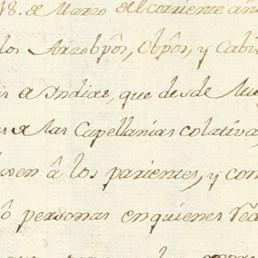 18. de Marzo del corriente año
los Arzobp̃os, Obp̃os, y Cabi
as a Indias, que desde lue
s a las Capellanias colativa
sen â los parientes, y con
ô personas en quienes